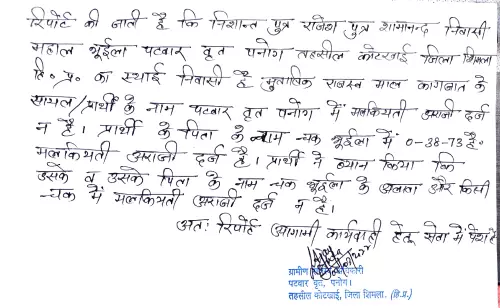 रिपोर्ट की जाती है कि निशान्त पुत्र राजेश पुत्र शामानन्द निवासी
महाल भूईला पटवार वृत पनोग तहसील कोटखाई जिला शिमला
हि॰ प्र॰ का स्थाई निवासी है मुताबिक राजस्व माल कागजात के
सायल/प्रार्थी के नाम पटवार वृत पनोग में मलकियती अराजी दर्ज
न है। प्रार्थी के पिता के नाम चक भूईला में 0-38-73 है॰
मलकियती अराजी दर्ज है। प्रार्थी ने ब्यान किया कि
उसके व उसके पिता के नाम चक भूईला के अलावा और किसी
चक में मलकियती अराजी दर्ज न है।
अतः रिपोर्ट आगामी कार्यवाही हेतू सेवा में पेश है
ग्रामीण
पटवार वृत, पनोग।
तहसील कोटखाई, जिला शिमला. (हि.प्र.)